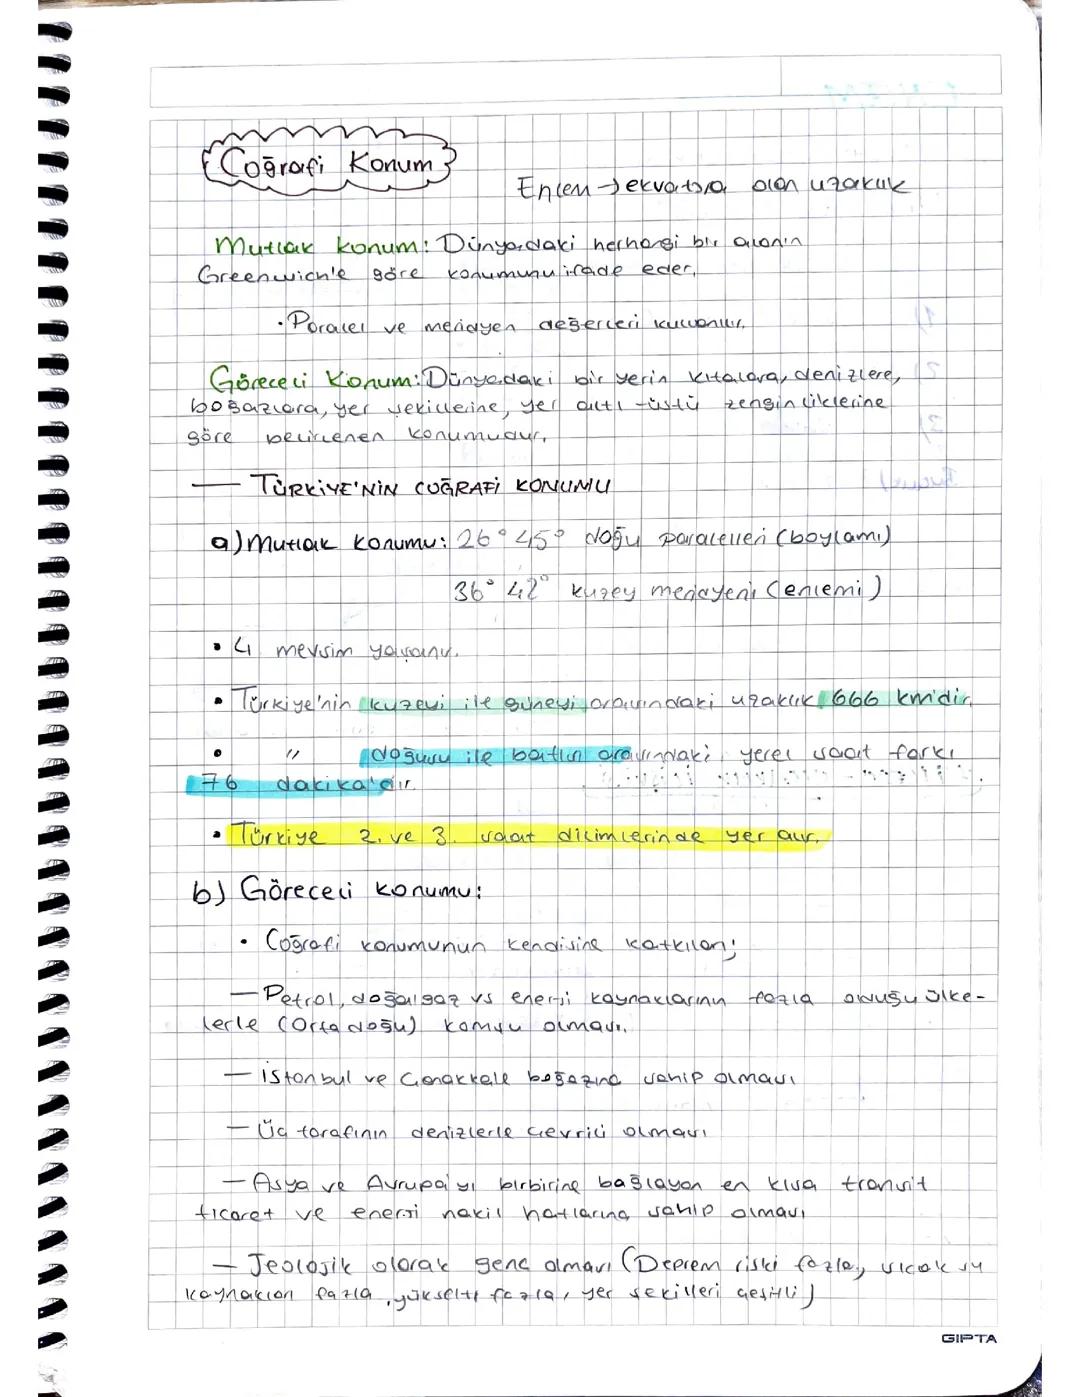 Coğrafi Konum
Enlem → ekvatora olan uzaklık
Mutlak konum: Dünyadaki herhangi bir alanın
Greenwich'e göre konumunu ifade eder.
• Paralel ve meridyen değerleri kullanılır.
Göreceli Konum: Dünyadaki bir yerin kıtalara, denizlere,
boğazlara, yer şekillerine, yer altı-üstü zenginliklerine
göre belirlenen konumudur.
— TÜRKİYE'NİN COĞRAFİ KONUMU
a) Mutlak Konumu: 26° 45° doğu paralelleri (boylamı)
36° 42° kuzey meridyeni (enlemi)
• 4 mevsim yaşanır.
• Türkiye'nin kuzeyi ile güneyi arasındaki uzaklık 666 km'dir.
• " doğusu ile batısı arasındaki yerel saat farkı
76 dakika'dır.
• Türkiye 2. ve 3. saat dilimlerinde yer alır.
b) Göreceli konumu:
• Coğrafi konumunun kendisine katkıları;
— Petrol, doğalgaz vs enerji kaynaklarının fazla olduğu ülke-
lerle (Orta doğu) komşu olması.
— İstanbul ve Çanakkale boğazına sahip olması
— Üç tarafının denizlerle çevrili olması
— Asya ve Avrupa'yı birbirine bağlayan en kısa transit
ticaret ve enerji nakil hatlarına sahip olması
— Jeolojik olarak genç olması (Deprem riski fazla, sıcak su
kaynakları fazla, yükselti fazla, yer şekilleri çeşitli)
GIPTA